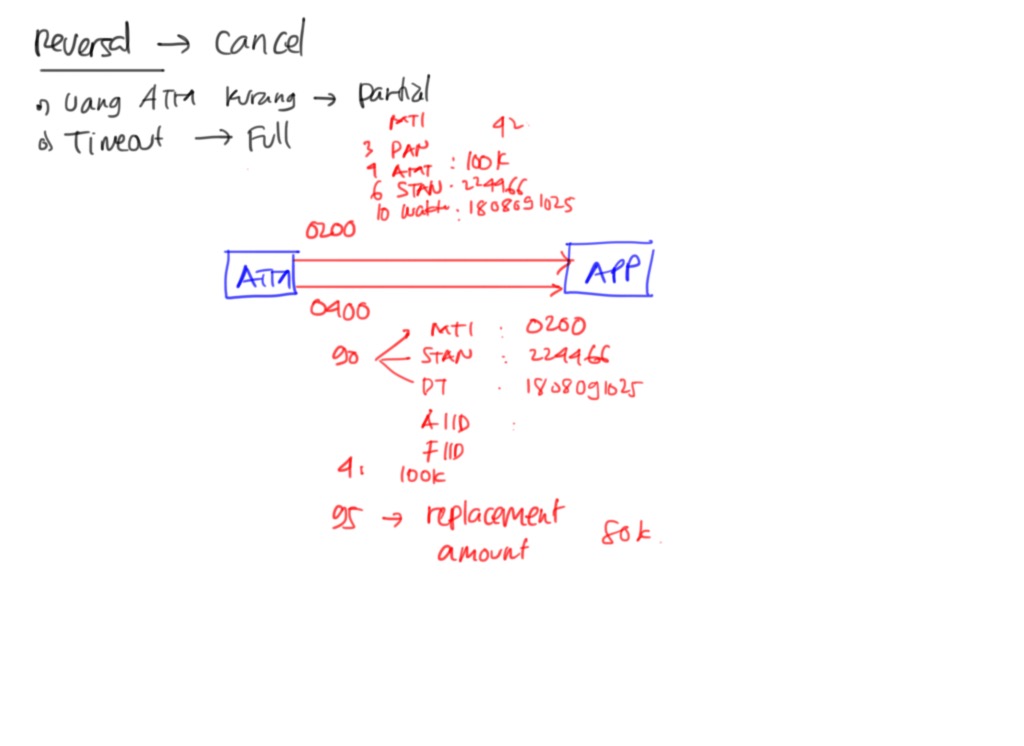 Reversal → Cancel
a) Uang ATM kurang → Partial
b) Timeout → Full
MTI 42
3 PAN
4 AMT : 100K
6 STAN . 224466
10 waktu : 1808091025
0200
ATM
APP
0400
MTI : 0200
90 STAN : 224466
DT . 1808091025
AIID :
FIID
4: 100k
95 → replacement
amount 80k